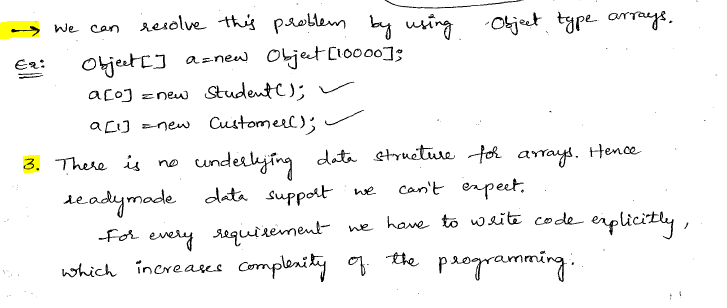 → we can resolve this problem by using Object type arrays.
Ex: Object[] a=new Object[10000];
a[0] =new Student(); ✓
a[1] =new Customer(); ✓
3. There is no underlying data structure for arrays. Hence
readymade data support we can't expect.
For every requirement we have to write code explicitly,
which increases complexity of the programming.